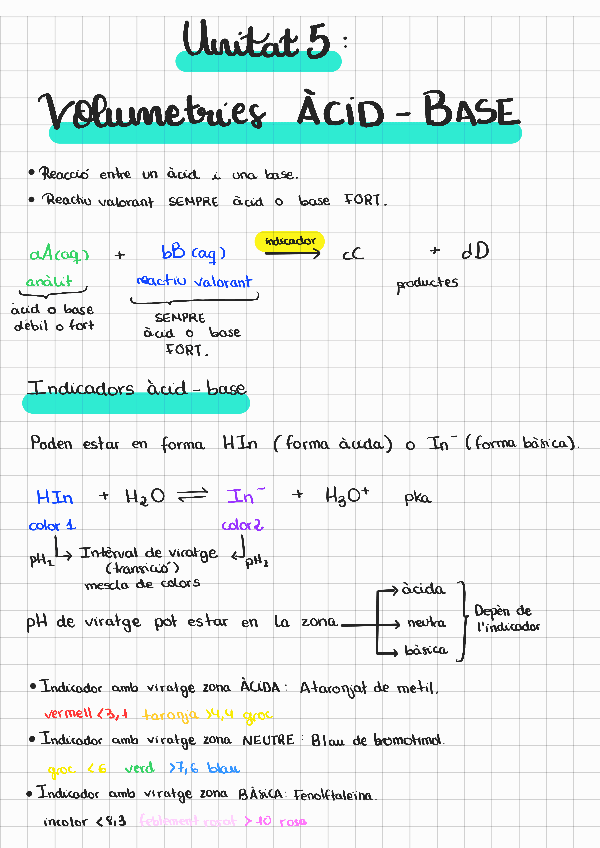 Unitat 5:
Volumetries ÀCID - BASE
• Reacció entre un àcid i una base.
• Reactiu valorant SEMPRE àcid o base FORT.
indicador
aA(aq) + bB(aq) → cC + dD
anàlit reactiu valorant productes
àcid o base
dèbil o fort
SEMPRE
àcid o base
FORT.
Indicadors àcid-base
Poden estar en forma HIn (forma àcida) o In⁻ (forma bàsica).
HIn + H₂O ⇌ In⁻ + H₃O⁺ pka
color 1 color 2
pH₁ → Intèrval de viratge ← pH₂
(transició)
mescla de colors
àcida
pH de viratge pot estar en la zona → neutra
bàsica
Depèn de
l'indicador
• Indicador amb viratge zona ÀCIDA: Ataronjat de metil.
vermell <3,1 taronja >4,4 groc
• Indicador amb viratge zona NEUTRE: Blau de bromotimol.
groc <6 verd >7,6 blau
• Indicador amb viratge zona BÀSICA: Fenolftaleïna.
incolor <8,3 feblement rosat >10 rosa